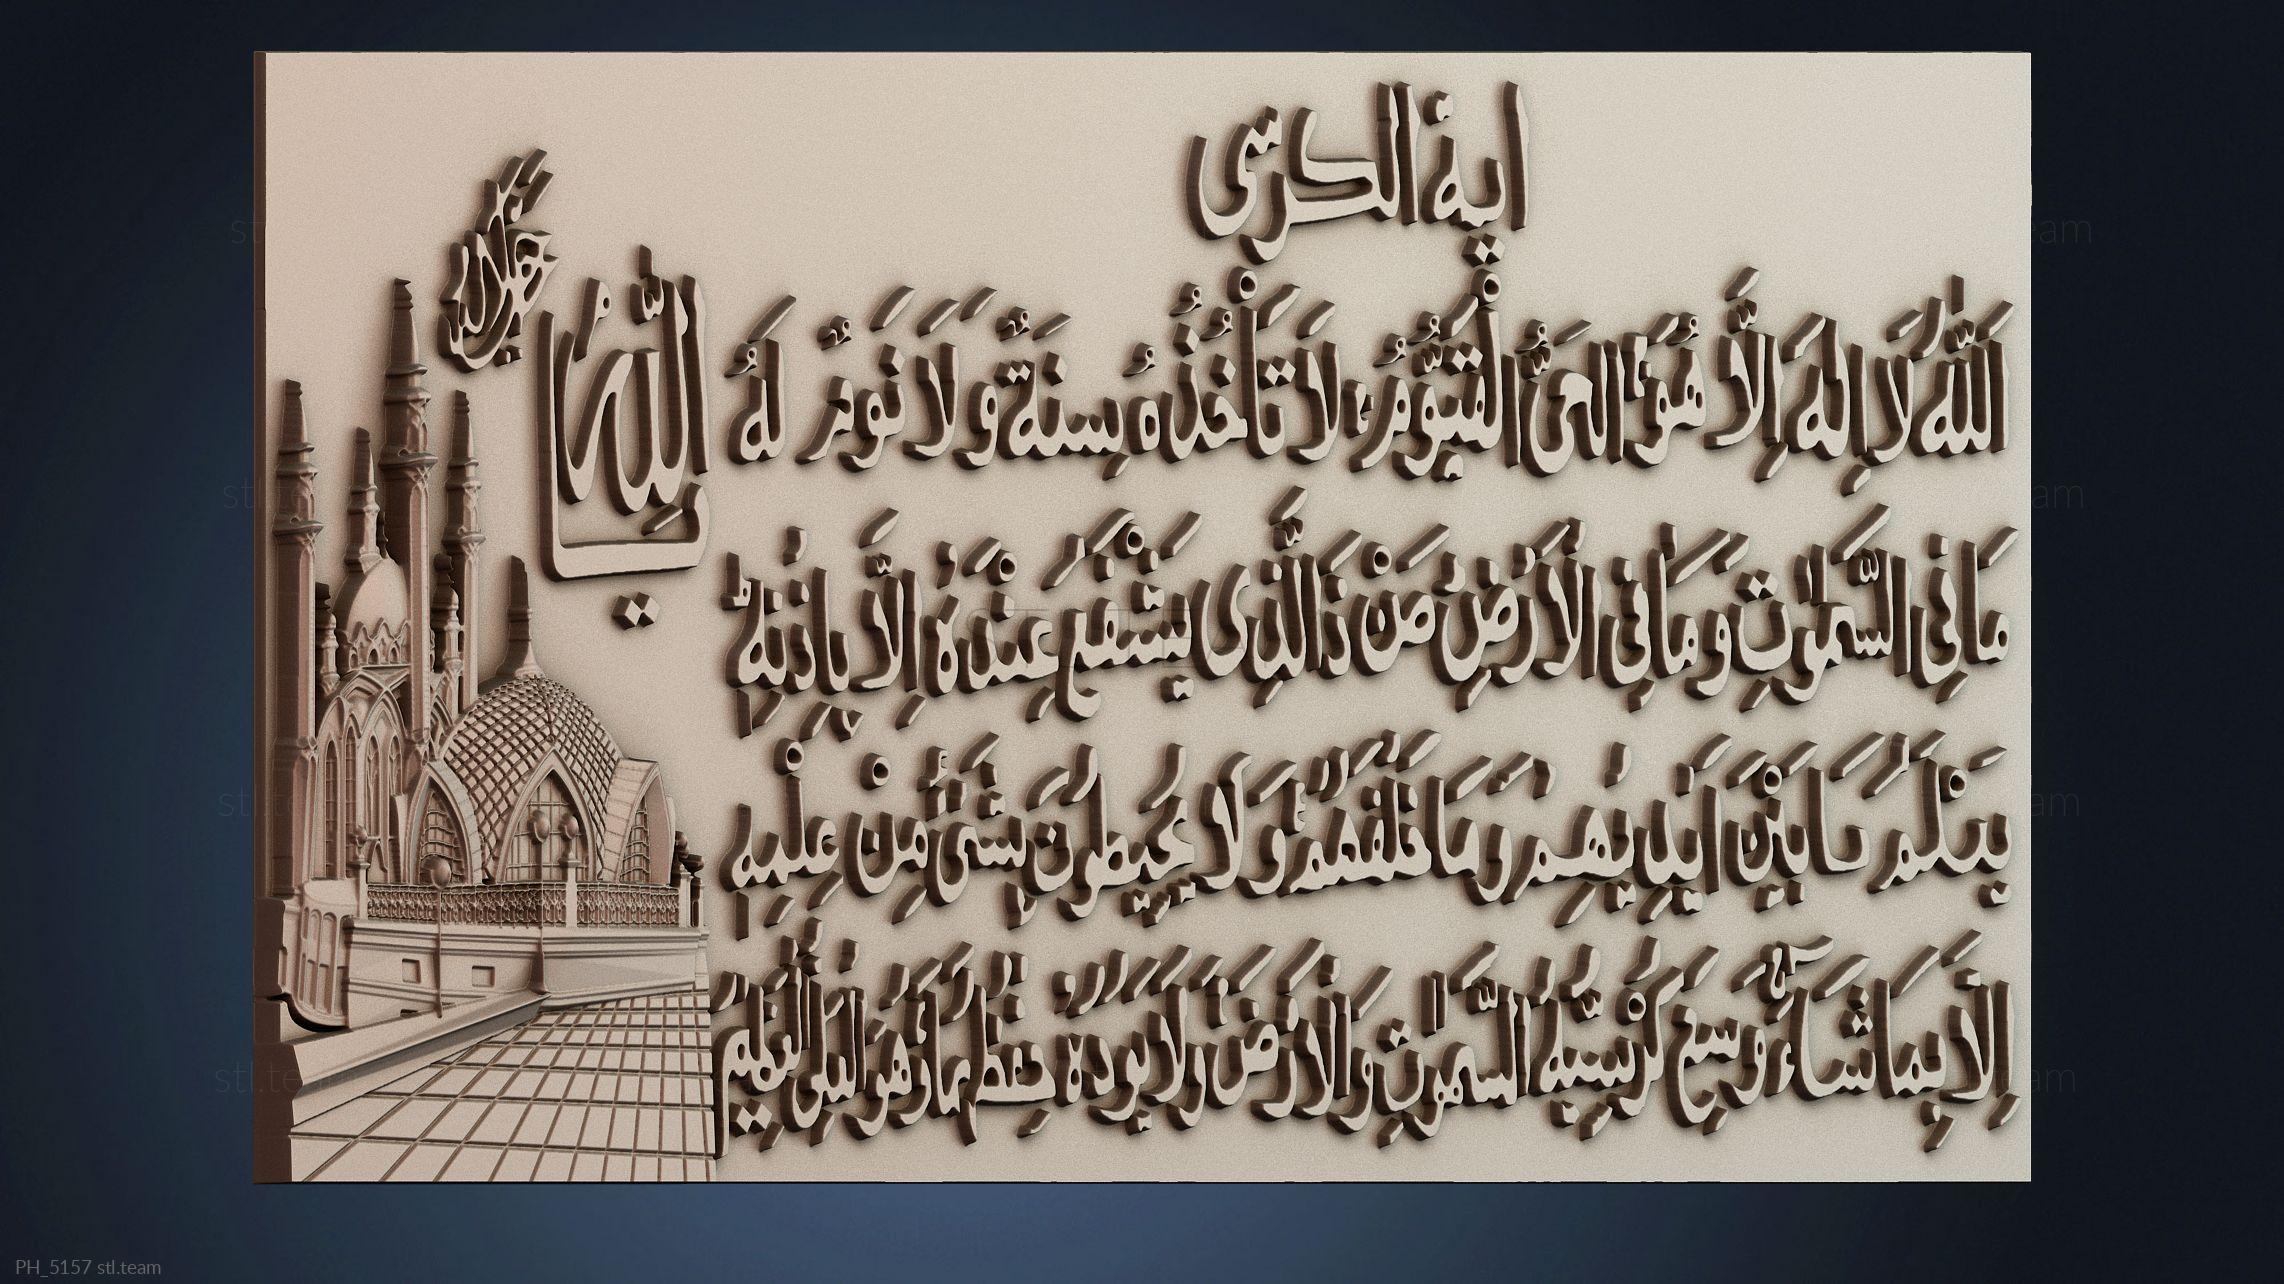 اية الكرسى
اَللّٰهُ لَا اِلٰهَ اِلَّا هُوَ الْحَىُّ الْقَيُّوْمُ لَا تَأْخُذُهٗ سِنَةٌ وَّلَا نَوْمٌ لَهٗ
مَا فِى السَّمٰوٰتِ وَمَا فِى الْاَرْضِ مَنْ ذَا الَّذِى يَشْفَعُ عِنْدَهٗ اِلَّا بِاِذْنِهٖ
يَعْلَمُ مَا بَيْنَ اَيْدِيْهِمْ وَمَا خَلْفَهُمْ وَلَا يُحِيْطُوْنَ بِشَىْءٍ مِّنْ عِلْمِهٖ
اِلَّا بِمَا شَآءَ وَسِعَ كُرْسِيُّهُ السَّمٰوٰتِ وَالْاَرْضَ وَلَا يَؤُدُهٗ حِفْظُهُمَا وَهُوَ الْعَلِىُّ الْعَظِيْمُ
اللّٰهُ
جل جلاله
PH_5157 stl.team